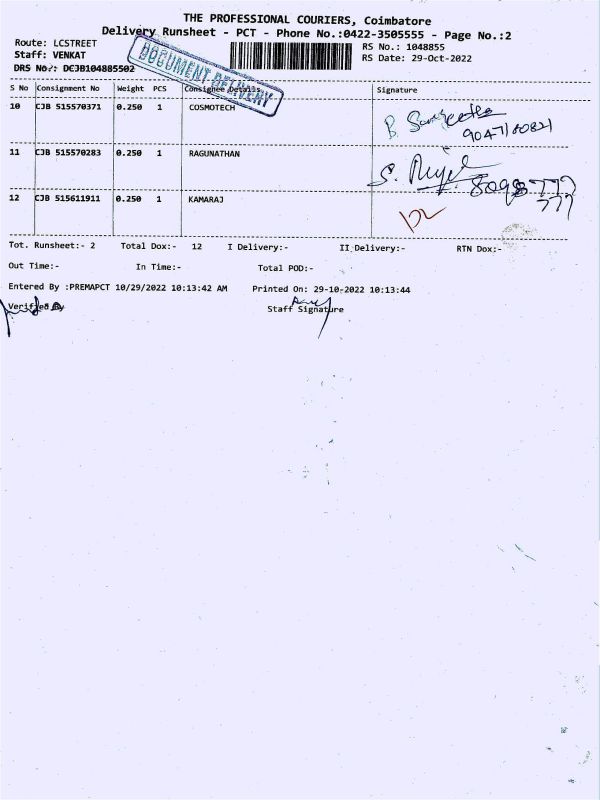 THE PROFESSIONAL COURIERS, Coimbatore
Delivery Runsheet - PCT - Phone No.:0422-3505555 - Page No.:2
Route: LCSTREET
RS No.: 1048855
Staff: VENKAT
RS Date: 29-Oct-2022
DRS No.: DCJB104885502
DOCUMENT DELIVERY
S No Consignment No Weight PCS Consignee Details Signature
10 CJB 515570371 0.250 1 COSMOTECH
B. Sangeetha
11 CJB 515570283 0.250 1 RAGUNATHAN
8098 777
777
12 CJB 515611911 0.250 1 KAMARAJ
Tot. Runsheet:- 2 Total Dox:- 12 I Delivery:- II Delivery:- RTN Dox:-
Out Time:- In Time:- Total POD:-
Entered By :PREMAPCT 10/29/2022 10:13:42 AM Printed On: 29-10-2022 10:13:44
Verified By Staff Signature